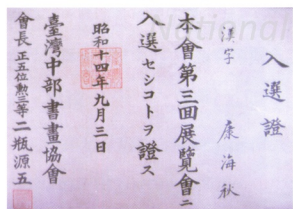 入選證
漢字 康海秋
本會第三回展覽會ニ
入選セシコトヲ證ス
昭和十四年九月三日
臺灣中部書畫協會
會長正五位勲三等二瓶源五
National